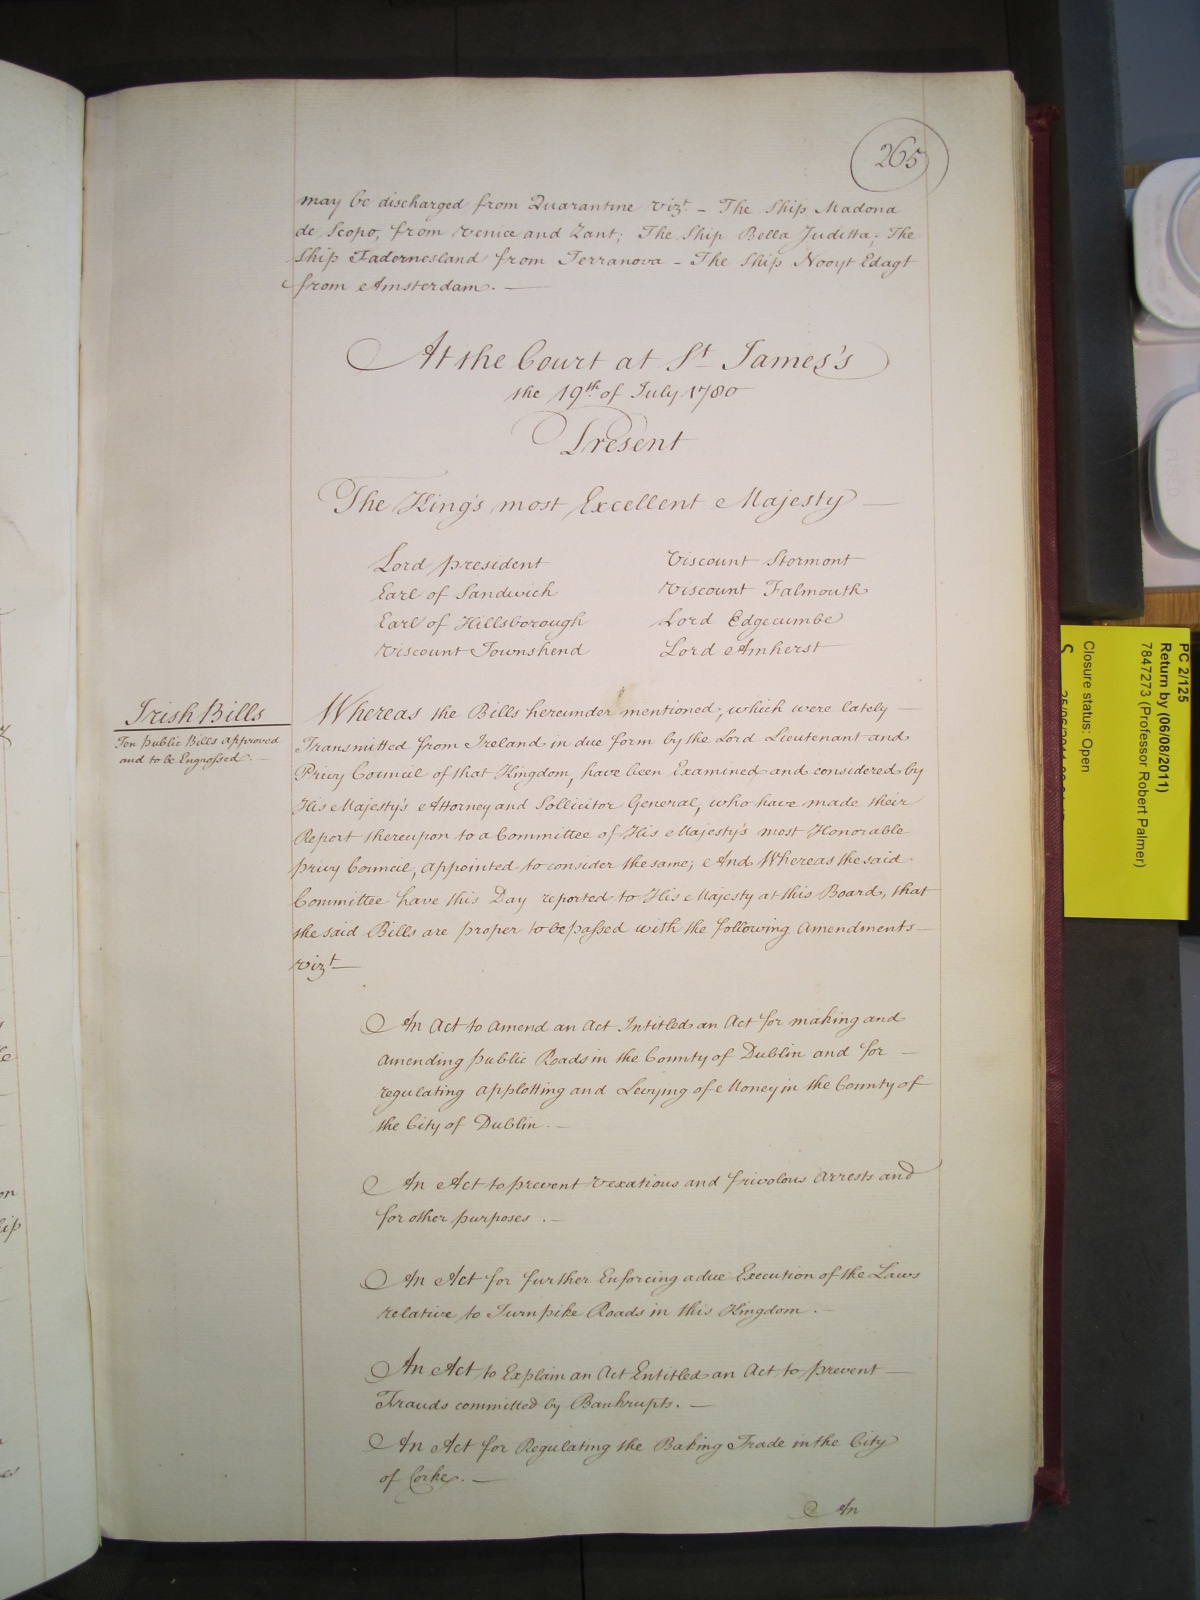 265
may be discharged from Quarantine vizt. - The Ship Madona
de Scopo, from Venice and Zant; The Ship Bella Juditta; The
Ship Fadernesland from Terranova - The Ship Nooyt Edagt
from Amsterdam. -
At the Court at St James's
the 19th of July 1780
Present
The King's most Excellent Majesty -
Lord president
Viscount Stormont
Earl of Sandwich
Viscount Falmouth
Earl of Hillsborough
Lord Edgecumbe
Viscount Townshend
Lord Amherst
Irish Bills
Ten public Bills approved
and to be Engrossed. -
Whereas the Bills hereunder mentioned, which were lately -
Transmitted from Ireland in due form by the Lord Lieutenant and
Privy Council of that Kingdom, have been Examined and considered by
His Majesty's Attorney and Sollicitor General, who have made their
Report thereupon to a Committee of His Majesty's most Honorable
privy Council, appointed to consider the same; And Whereas the said
Committee have this Day reported to His Majesty at this Board, that
the said Bills are proper to be passed with the following Amendments -
vizt -
An Act to amend an Act Intitled an Act for making and
amending public Roads in the County of Dublin and for -
regulating applotting and Levying of Money in the County of
the City of Dublin. -
An Act to prevent vexatious and frivolous Arrests and
for other purposes. -
An Act for further Enforcing a due Execution of the Laws
relative to Turnpike Roads in this Kingdom. -
An Act to Explain an Act Entitled an Act to prevent -
Frauds committed by Bankrupts. -
An Act for Regulating the Baking Trade in the City
of Corke. -
An
PC 2/125
Return by (06/08/2011)
7847273 (Professor Robert Palmer)
Closure status: Open